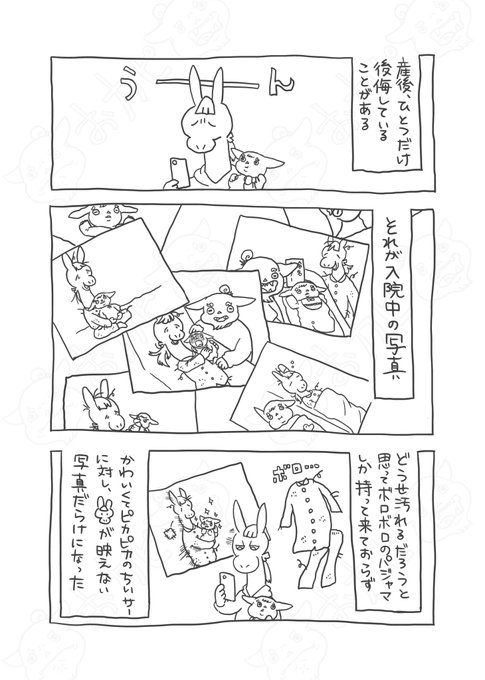 産後、ひとつだけ
後悔している
ことがある
うーーん
それが入院中の写真
どうせ汚れるだろうと
思ってボロボロのパジャマ
しか持って来ておらず
ボロ…
かわいくてピカピカのちいサー
に対し、が映えない
写真だらけになった